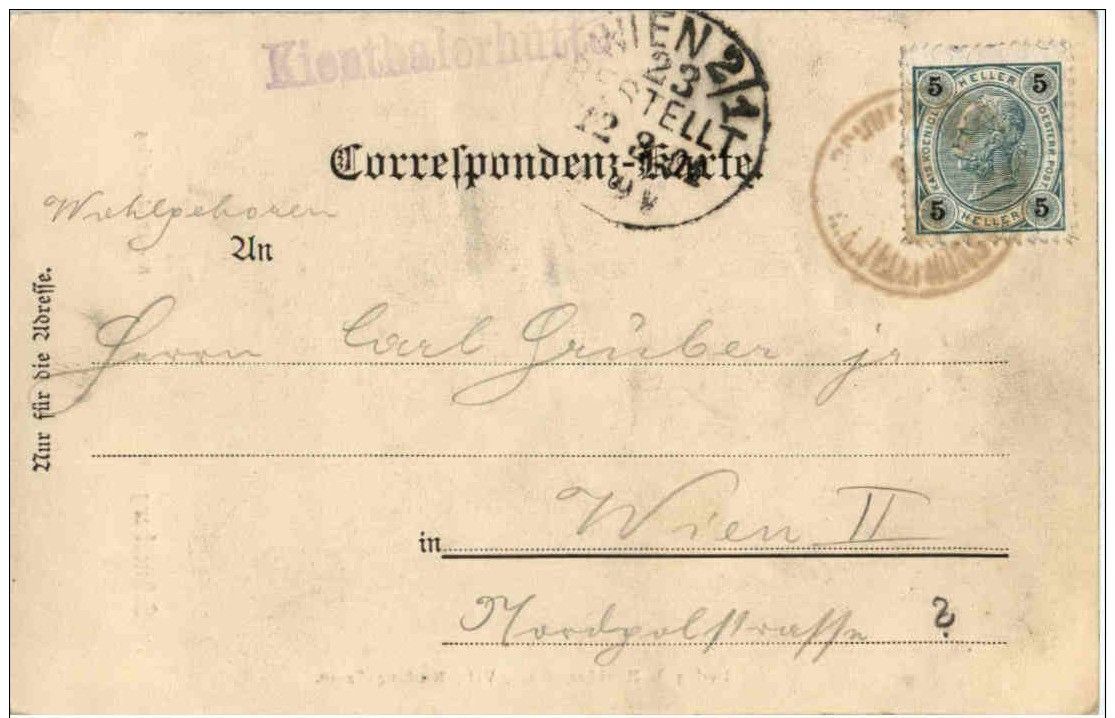 Kienthalerhütte
WIEN 2/1
BESTELLT
12 3 02
Correspondenz-Karte.
5 HELLER 5
KAIS. KOENIGL. OESTERR. POST
5 HELLER 5
Wohlgeboren
An
Nur für die Adresse.
Herrn Carl Gruber jr
in Wien II
Nordpolstrasse ?